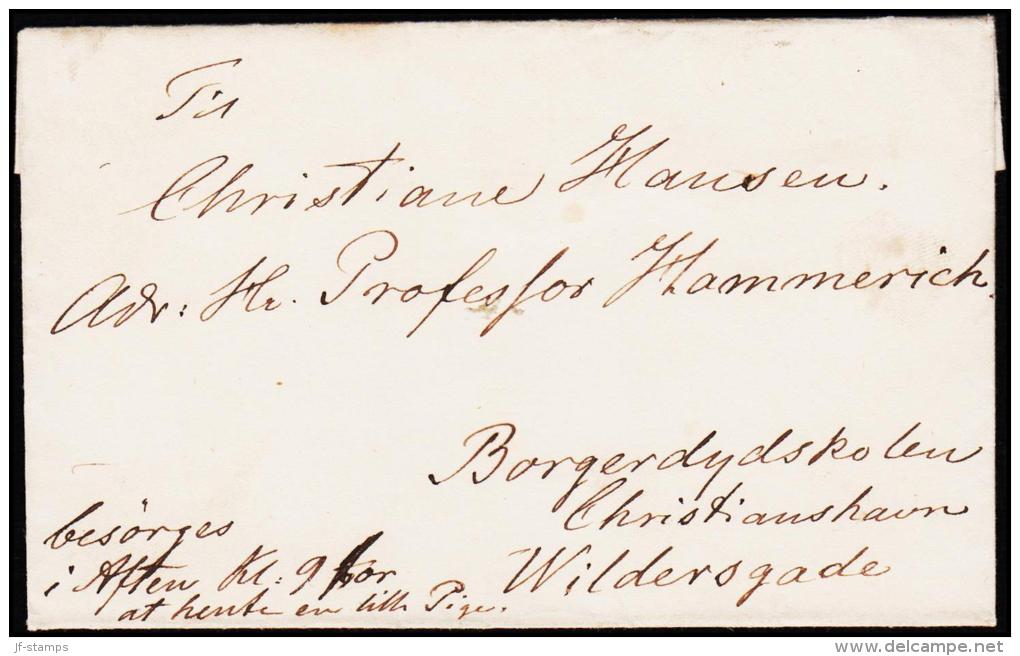 Til
Christiane Hansen.
Adr: Hr. Professor Hammerich.
Borgerdydskolen
Christianshavn
Wildersgade
besörges
i Aften Kl: 9 for
at hente en lille Pige.
jf-stamps
www.delcampe.net